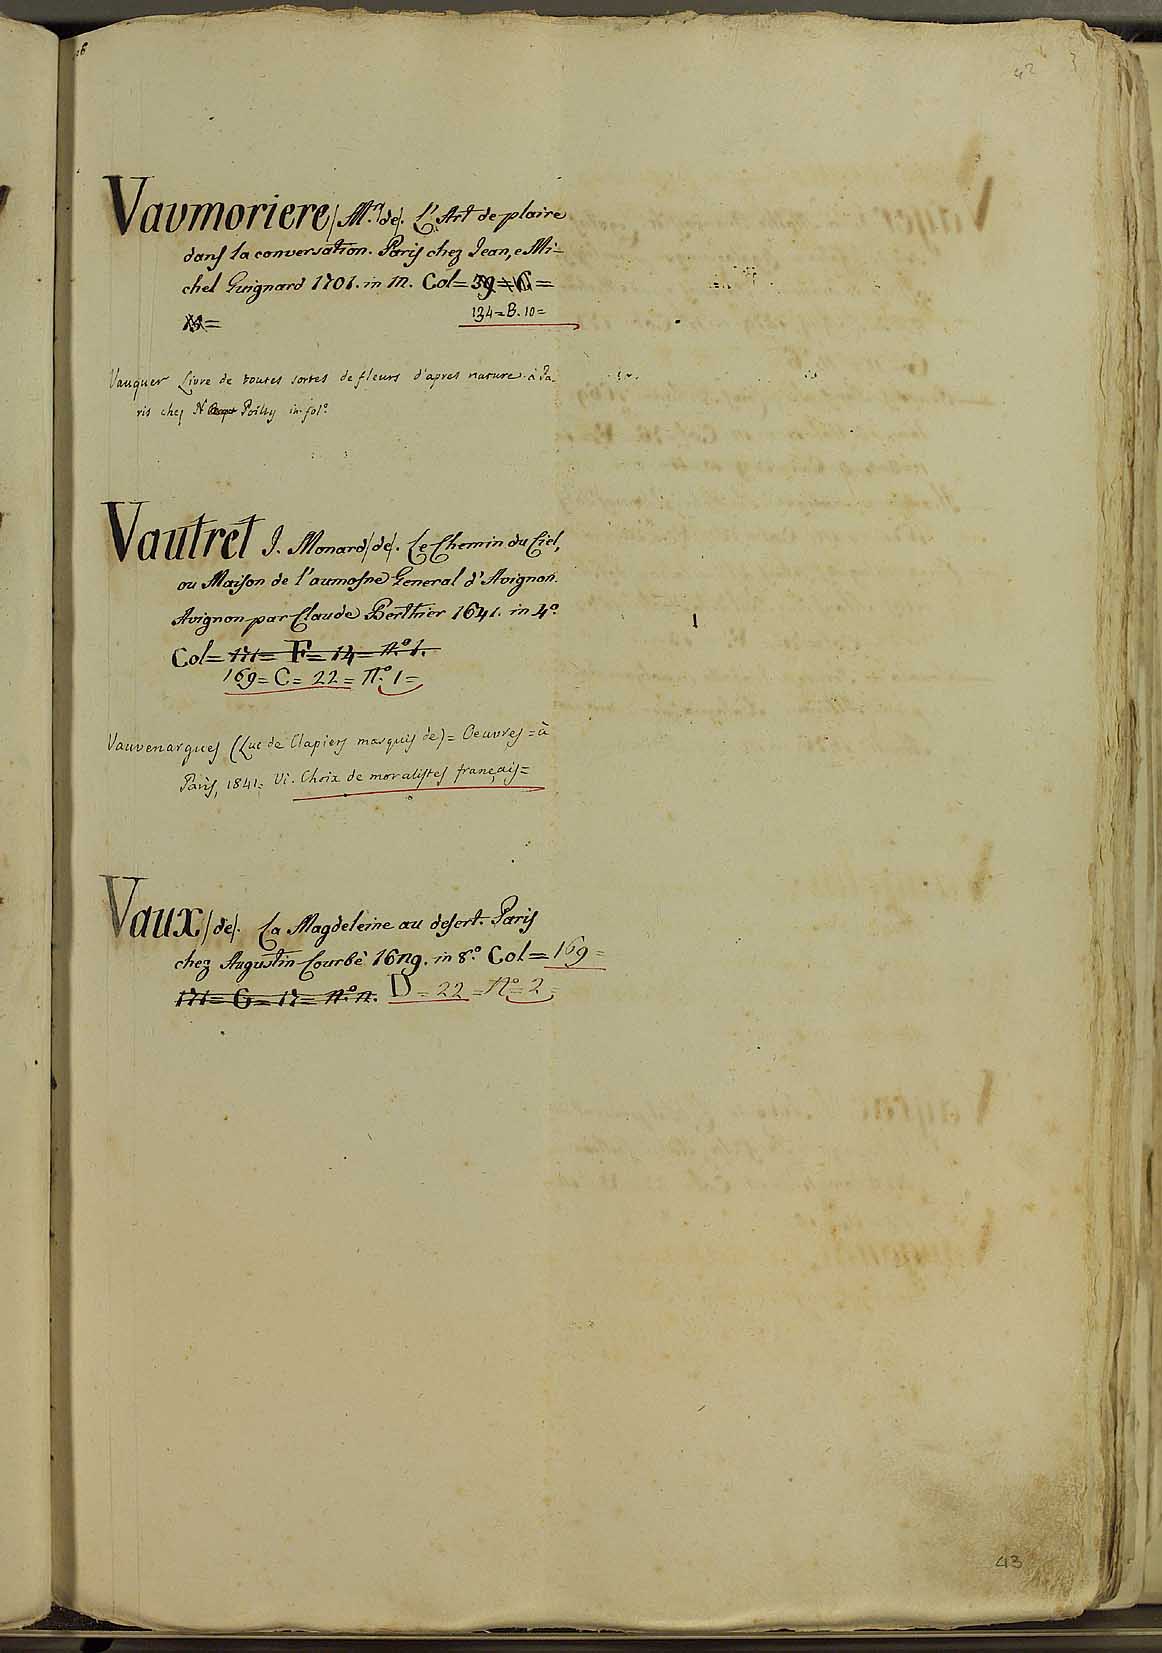 42
Vaumoriere (Mr. de). L'Art de plaire
dans la conversation. Paris chez Jean, e Mi=
chel Guignard 1701. in 12. Col= 39= C=
134=B. 10=
Vauquer Livre de toutes sortes de fleurs d'apres nature. à Pa-
ris chez N Poilly in fol°
Vautret J. Monard (de). Le Chemin du Ciel,
ou Maison de l'aumosne General d'Avignon.
Avignon par Claude Berthier 1641. in 4°
Col= 171= F= 14= n.° 1.
169= C= 22= N.° 1=
Vauvenargues (Luc de Clapiers marquis de)= Oeuvres = à
Paris, 1841= Vi. Choix de moralistes français=
Vaux (de). La Magdeleine au desert. Paris
chez Augustin Courbé 1629. in 8.° Col= 169=
171= G= 17= n.° 2. D= 22= N°= 2=
43